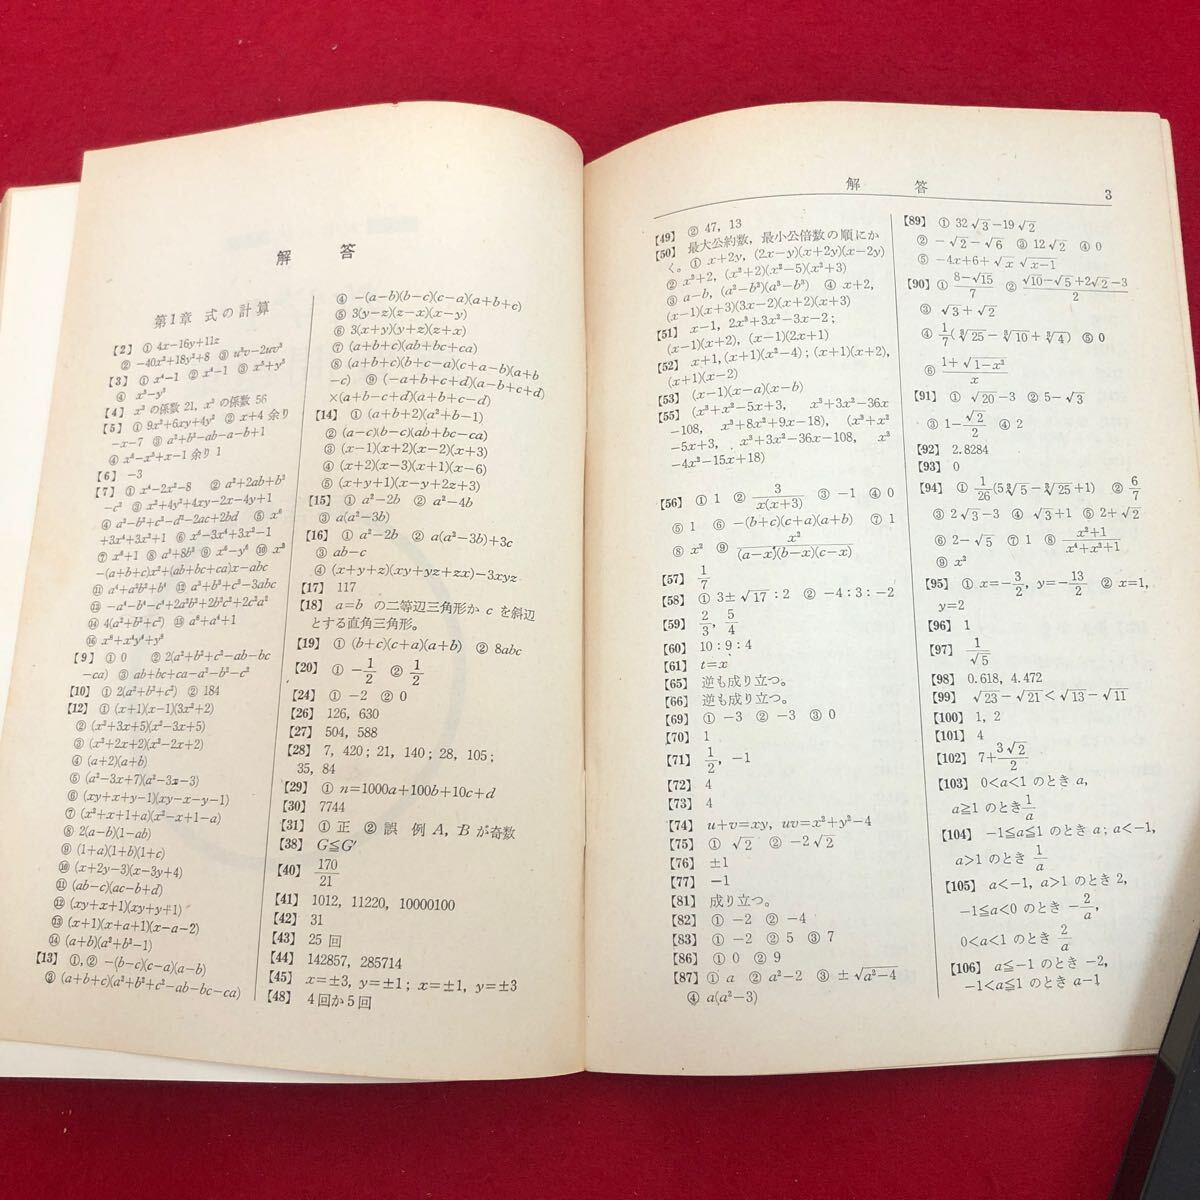 解答
第1章 式の計算
【2】 ① 4x−16y+11z
② −40x²+18y²+8 ③ u³v−2uv³
【3】 ① x⁴−1 ② x⁴−1 ③ x³+y³
④ x³−y³
【4】 x³ の係数 21, x² の係数 56
【5】 ① 9x²+6xy+4y² ② x+4 余り
−x−7 ③ a²+b²−ab−a−b+1
【6】 −3
【9】 ① 0 ② 2(a²+b²+c²−ab−bc
−ca) ③ ab+bc+ca−a²−b²−c²
【10】 ① 2(a²+b²+c²) ② 184
【12】 ① (x+1)(x−1)(3x²+2)
② (x²+3x+5)(x²−3x+5)
③ (x²+2x+2)(x²−2x+2)
④ (a+2)(a+b)
⑤ (a²−3x+7)(a²−3x−3)
⑥ (xy+x+y−1)(xy−x−y−1)
⑦ (x²+x+1+a)(x²−x+1−a)
⑧ 2(a−b)(1−ab)
⑨ (1+a)(1+b)(1+c)
⑩ (x+2y−3)(x−3y+4)
⑪ (ab−c)(ac−b+d)
⑫ (xy+x+1)(xy+y+1)
⑬ (x+1)(x+a+1)(x−a−2)
⑭ (a+b)(a²+b²−1)
【13】 ①,② −(b−c)(c−a)(a−b)
③ (a+b+c)(a²+b²+c²−ab−bc−ca)
④ −(a−b)(b−c)(c−a)(a+b+c)
⑤ 3(y−z)(z−x)(x−y)
⑥ 3(x+y)(y+z)(z+x)
⑦ (a+b+c)(ab+bc+ca)
⑧ (a+b+c)(b+c−a)(c+a−b)(a+b
−c) ⑨ (−a+b+c+d)(a−b+c+d)
×(a+b−c+d)(a+b+c−d)
【14】 ① (a+b+2)(a²+b−1)
② (a−c)(b−c)(ab+bc−ca)
③ (x−1)(x+2)(x−2)(x+3)
④ (x+2)(x−3)(x+1)(x−6)
⑤ (x+y+1)(x−y+2z+3)
【15】 ① a²−2b ② a²−4b
③ a(a²−3b)
【16】 ① a²−2b ② a(a²−3b)+3c
③ ab−c
④ (x+y+z)(xy+yz+zx)−3xyz
【17】 117
【18】 a=b の二等辺三角形か c を斜辺
とする直角三角形。
【19】 ① (b+c)(c+a)(a+b) ② 8abc
【20】 ① −1/2 ② 1/2
【24】 ① −2 ② 0
【26】 126, 630
【27】 504, 588
【28】 7, 420 ; 21, 140 ; 28, 105 ;
35, 84
【29】 ① n=1000a+100b+10c+d
【30】 7744
【31】 ① 正 ② 誤 例 A, B が奇数
【38】 G≦G′
【40】 170/21
【41】 1012, 11220, 10000100
【42】 31
【43】 25 回
【44】 142857, 285714
【45】 x=±3, y=±1 ; x=±1, y=±3
【48】 4回か5回
解答 3
【49】 ② 47, 13
【50】 最大公約数, 最小公倍数の順にか
く。① x+2y, (2x−y)(x+2y)(x−2y)
② x³+2, (x³+2)(x²−5)(x²+3)
③ a−b, (a²−b²)(a³−b³) ④ x+2,
(x−1)(x+3)(3x−2)(x+2)(x+3)
【51】 x−1, 2x³+3x²−3x−2 ;
(x−1)(x+2), (x−1)(2x+1)
【52】 x+1, (x+1)(x²−4) ; (x+1)(x+2),
(x+1)(x−2)
【53】 (x−1)(x−a)(x−b)
【55】 (x³+x²−5x+3, x³+3x²−36x
−108, x³+8x²+9x−18), (x³+x²
−5x+3, x³+3x²−36x−108, x³
−4x²−15x+18)
【56】 ① 1 ② 3/x(x+3) ③ −1 ④ 0
⑤ 1 ⑥ −(b+c)(c+a)(a+b) ⑦ 1
⑧ x² ⑨ x²/(a−x)(b−x)(c−x)
【57】 1/7
【58】 ① 3±√17 : 2 ② −4 : 3 : −2
【59】 2/3, 5/4
【60】 10 : 9 : 4
【61】 t=x
【65】 逆も成り立つ。
【66】 逆も成り立つ。
【69】 ① −3 ② −3 ③ 0
【70】 1
【71】 1/2, −1
【72】 4
【73】 4
【74】 u+v=xy, uv=x²+y²−4
【75】 ① √2 ② −2√2
【76】 ±1
【77】 −1
【81】 成り立つ。
【82】 ① −2 ② −4
【83】 ① −2 ② 5 ③ 7
【86】 ① 0 ② 9
【87】 ① a ② a²−2 ③ ±√a²−4
④ a(a²−3)
【89】 ① 32√3−19√2
② −√2−√6 ③ 12√2 ④ 0
⑤ −4x+6+√x √x−1
【90】 ① 8−√15/7 ② √10−√5+2√2−3/2
③ √3+√2
④ 1/7(∛25−∛10+∛4) ⑤ 0
⑥ 1+√1−x²/x
【91】 ① √20−3 ② 5−√3
③ 1−√2/2 ④ 2
【92】 2.8284
【93】 0
【94】 ① 1/26(5∛5−∛25+1) ② 6/7
③ 2√3−3 ④ √3+1 ⑤ 2+√2
⑥ 2−√5 ⑦ 1 ⑧ x²+1/x⁴+x²+1
⑨ x²
【95】 ① x=−3/2, y=−13/2 ② x=1,
y=2
【96】 1
【97】 1/√5
【98】 0.618, 4.472
【99】 √23−√21<√13−√11
【100】 1, 2
【101】 4
【102】 7+3√2/2
【103】 0<a<1 のとき a,
a≧1 のとき 1/a
【104】 −1≦a≦1 のとき a ; a<−1,
a>1 のとき 1/a
【105】 a<−1, a>1 のとき 2,
−1≦a<0 のとき −2/a,
0<a<1 のとき 2/a
【106】 a≦−1 のとき −2,
−1<a≦1 のとき a−1